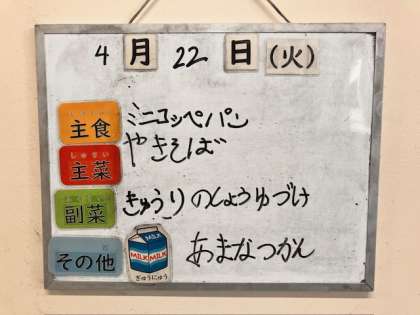 4月22日(火)
主食 ミニコッペパン
しゅさい
主菜 やきそば
副菜 きゅうりのしょうゆづけ
その他 あまなつかん
MILK
MILK MILK
ぎゅうにゅう